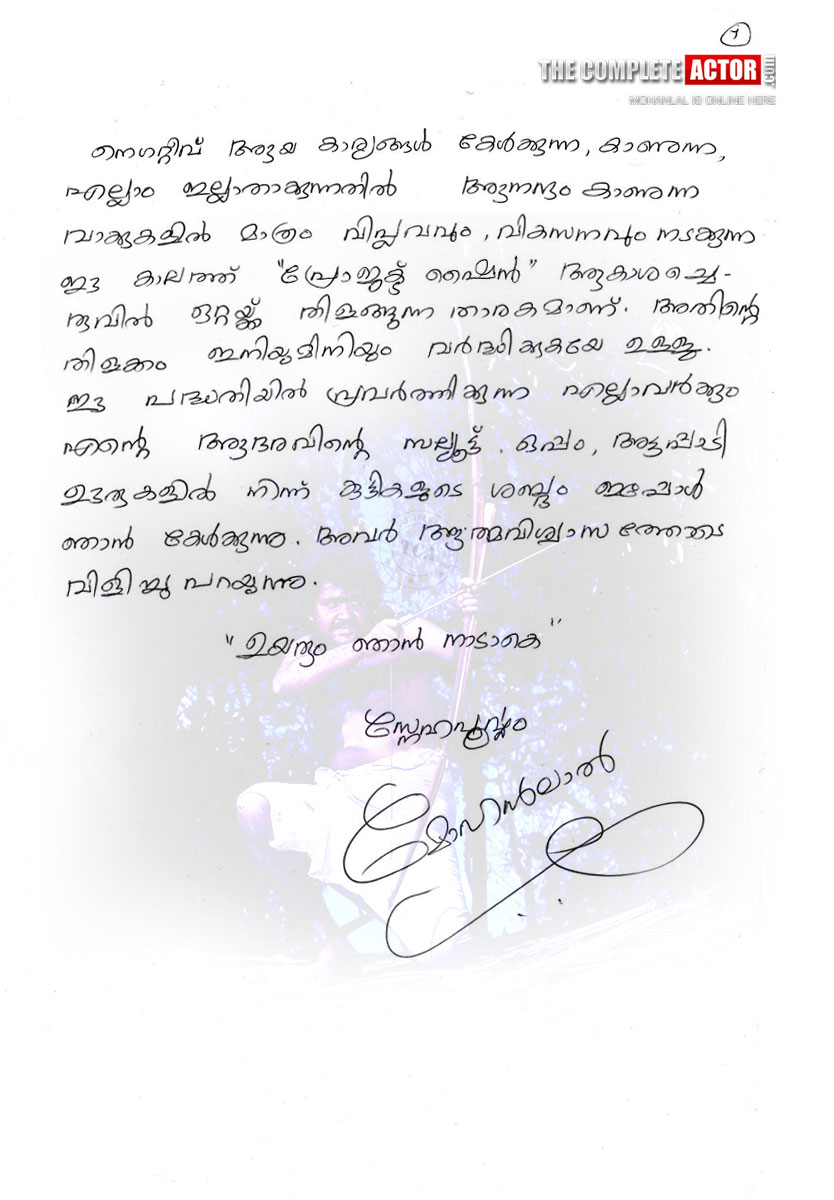 7
THE COMPLETE ACTOR .COM
MOHANLAL IS ONLINE HERE
നെഗറ്റീവ് ആയ കാര്യങ്ങൾ കേൾക്കുന്ന, കാണുന്ന,
എല്ലാം ഇല്ലാതാക്കുന്നതിൽ ആനന്ദം കാണുന്ന
വാക്കുകളിൽ മാത്രം വിപ്ലവവും, വികസനവും നടക്കുന്ന
ഈ കാലത്ത് "പ്രോജക്ട് ഷൈൻ" ആകാശച്ചെ-
രുവിൽ ഒറ്റയ്ക്ക് തിളങ്ങുന്ന താരകമാണ്. അതിന്റെ
തിളക്കം ഇനിയുമിനിയും വർദ്ധിക്കുകയേ ഉള്ളൂ.
ഈ പദ്ധതിയിൽ പ്രവർത്തിക്കുന്ന എല്ലാവർക്കും
എന്റെ ആദരവിന്റെ സല്യൂട്ട്. ഒപ്പം, അട്ടപ്പാടി
ഊരുകളിൽ നിന്ന് കുട്ടികളുടെ ശബ്ദം ഇപ്പോൾ
ഞാൻ കേൾക്കുന്നു. അവർ ആത്മവിശ്വാസത്തോടെ
വിളിച്ചു പറയുന്നു.
"ഉയരും ഞാൻ നാടാകെ"
സ്നേഹപൂർവ്വം
മോഹൻലാൽ